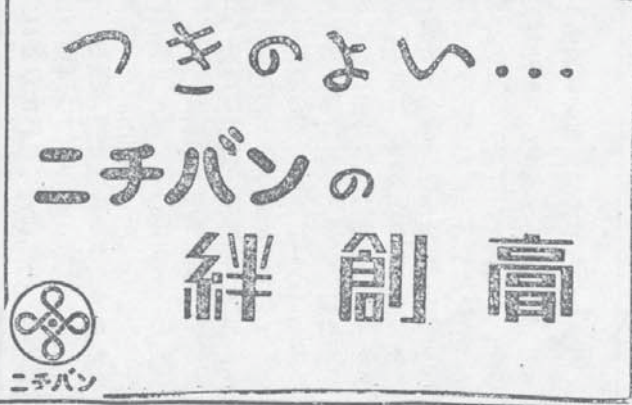 つきのよい...
ニチバンの
絆創膏
ニチバン